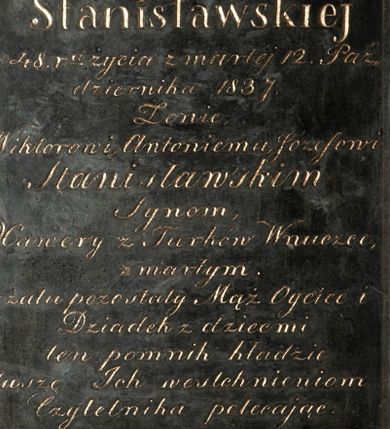 Stanisławskiej
48. r. życia zmarłej 12. Paź
dziernika 1837.
Żonie,
Wiktorowi, Antoniemu, Józefowi
Stanisławskim
Synom,
Xawery z Turków Wnuczec,
zmarłym.
żalu pozostały Mąż Oyciec i
Dziadek z dziecmi
ten pomnik kładzie
duszę Ich westchnieniom
Czytelnika polecając.